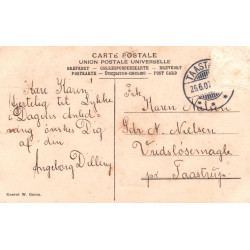 CARTE POSTALE
UNION POSTALE UNIVERSELLE
BREFKORT - CORRESPONDENZKARTE - BREVKORT
POSTKARTE - - POST CARD
TAASTR
25.6.0
Kære Karin!
Hjertelig til Lykke
i Dagens Anled-
ning ønskes Dig
af din
Ingeborg Delling
Frk.
Karen Nielsen
Gdr. N. Nielsen
Vridsløsemagle
pr. Taastrup.